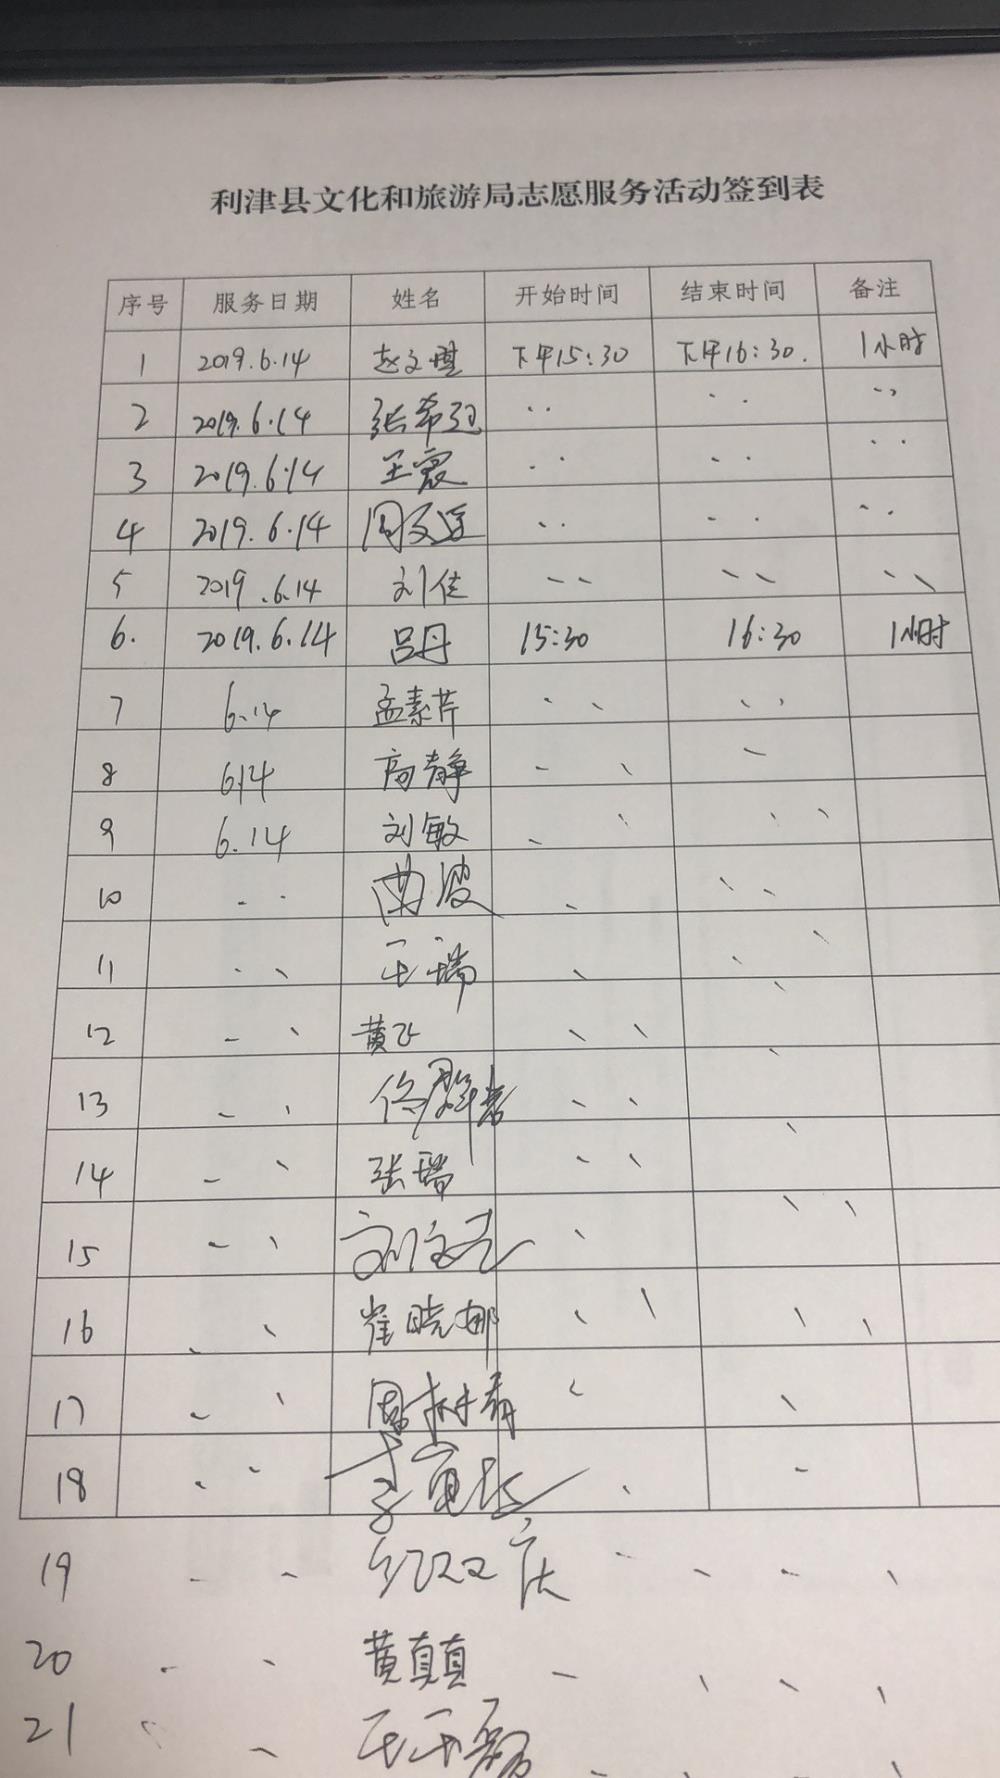 利津县文化和旅游局志愿服务活动签到表
序号 服务日期 姓名 开始时间 结束时间 备注
1 2019.6.14 赵文琪 下午15:30 下午16:30. 1小时
2 2019.6.14 张希 ·· ·· ··
3 2019.6.14 王震 ·· ·· ··
4 2019.6.14 周文 ·· ·· ··
5 2019.6.14 刘佳 ·· 、、 、、
6. 2019.6.14 吕丹 15:30 16:30 1小时
7 6.14 孟素芹 、、 、、
8 6.14 高静 、、 、
9 6.14 刘敏 、、 、、
10 ·· 曲波 、 、、
11 、、 王瑞 、 、、
12 、、 黄飞 、、 、
13 、、 、、 、
14 、、 张瑞 、、 、
15 、、 刘 、 、、
16 、、 崔晓娜 、、 、、
17 、、 周树青 、 、
18 、、 李 、 、
19 、、 纪双庆 、、 、、 、
20 、、 黄真真 、、 、、 、
21 、、 王玉 、、 、、